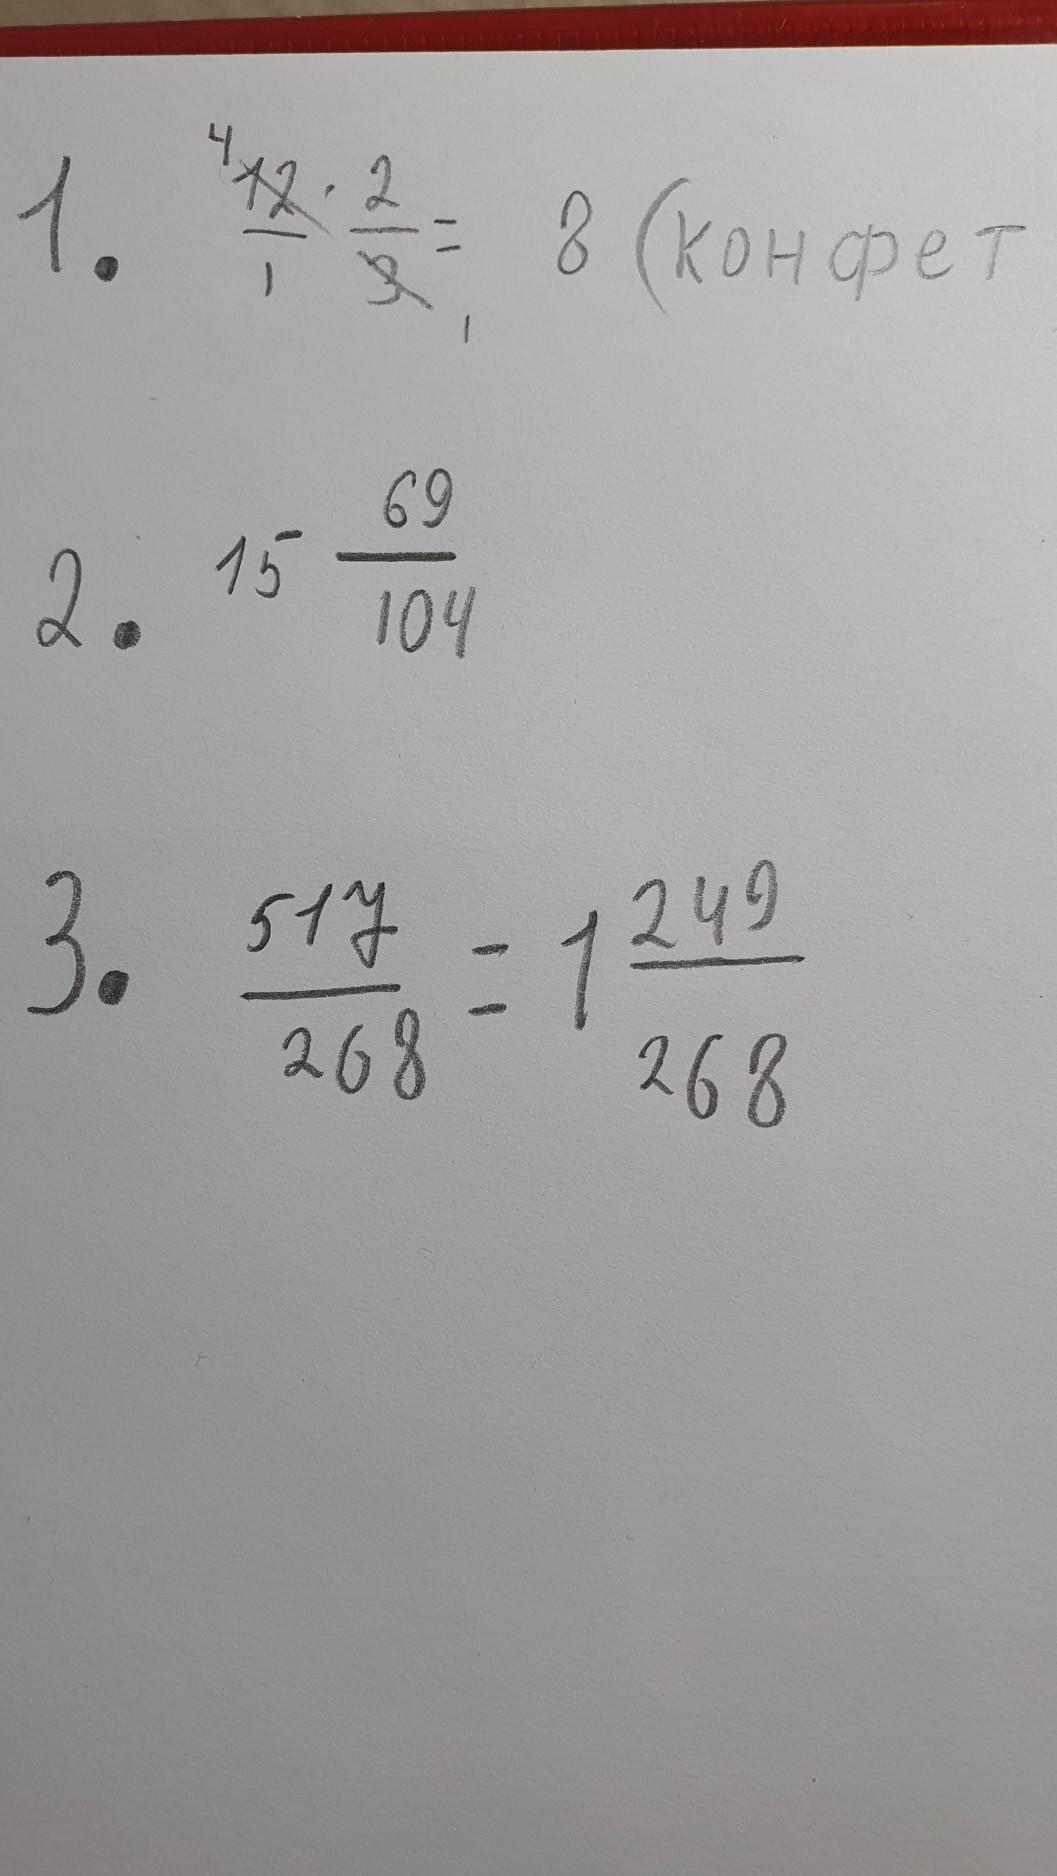 1. 4 12/1 · 2/3 1 = 8 (конфет
2. 15 69/104
3. 517/268 = 1 249/268